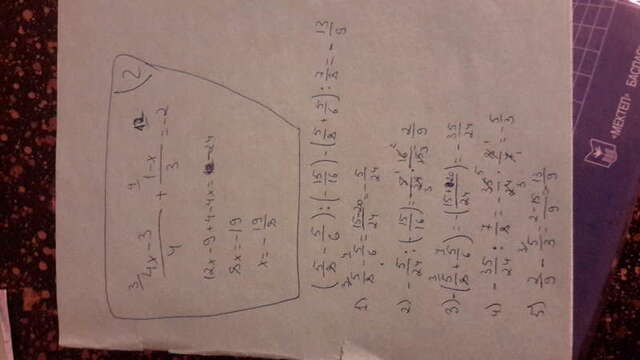 2)
(4x-3)/4 + (1-x)/3 = -2
12x-9+4-4x=-24
8x=-19
x=-19/8
(5/8 - 5/6) : (-15/16) - (5/8 + 5/6) : 7/8 = -13/9
1) 5/8 - 5/6 = (15-20)/24 = -5/24
2) -5/24 : (-15/16) = 2/9
3) -(5/8 + 5/6) = -(15+20)/24 = -35/24
4) -35/24 : 7/8 = -35/24 · 8/7 = -5/3
5) 2/9 - 5/3 = (2-15)/9 = 13/9
"МЕКТЕП" БАСПА